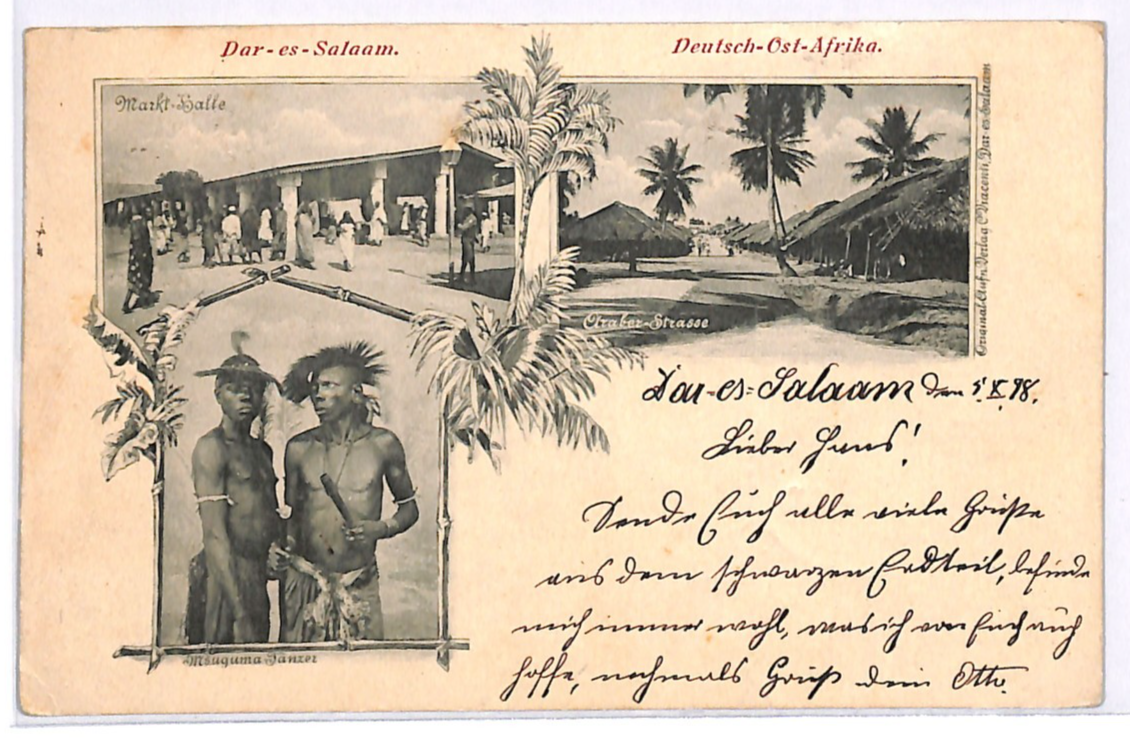 Dar-es-Salaam.
Deutsch-Ost-Afrika.
Markt-Halle
Original-Aufn. Verlag C. Vincenti, Dar-es-Salaam
Araber-Strasse
Msuguma Tänzer
Dar-es-Salaam den 5. X. 98.
Lieber Hans!
Sende Euch alle viele Grüße
aus dem schwarzen Erdteil, befinde
mich immer wohl, was ich von Euch auch
hoffe, nochmals Gruß dein Otto.